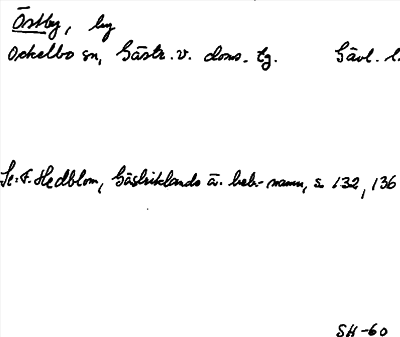 Östby, by
Ockelbo sn, Gästr. v. doms. tg. Gävl. l.
Se: F. Hedblom, Gästriklands ä. beb-namn, s 132, 136
SH-60